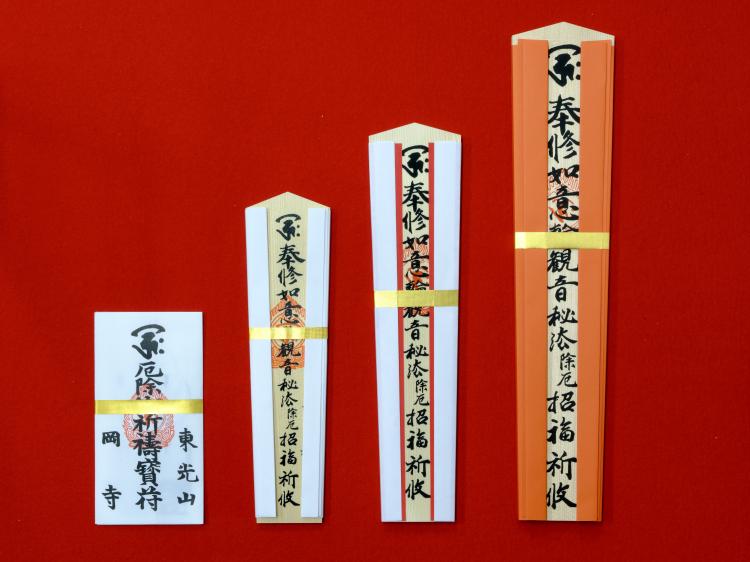 奉修如意輪観音秘法除厄招福祈攸
奉修如意輪観音秘法除厄招福祈攸
奉修如意観音秘法除厄招福祈攸
東光山
厄除祈禱寳苻
岡寺